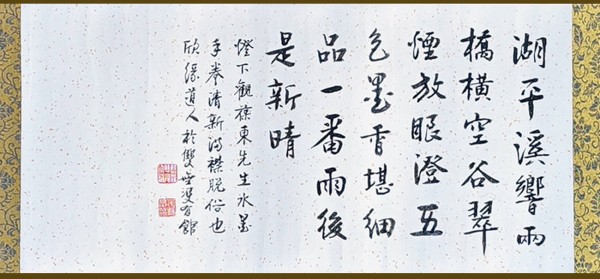 湖平溪響兩
橋橫空谷翠
煙放眼澄五
色墨香堪細
品一番雨後
是新晴
燈下觀東先生水墨
手卷清新襟脫俗也
道人於館